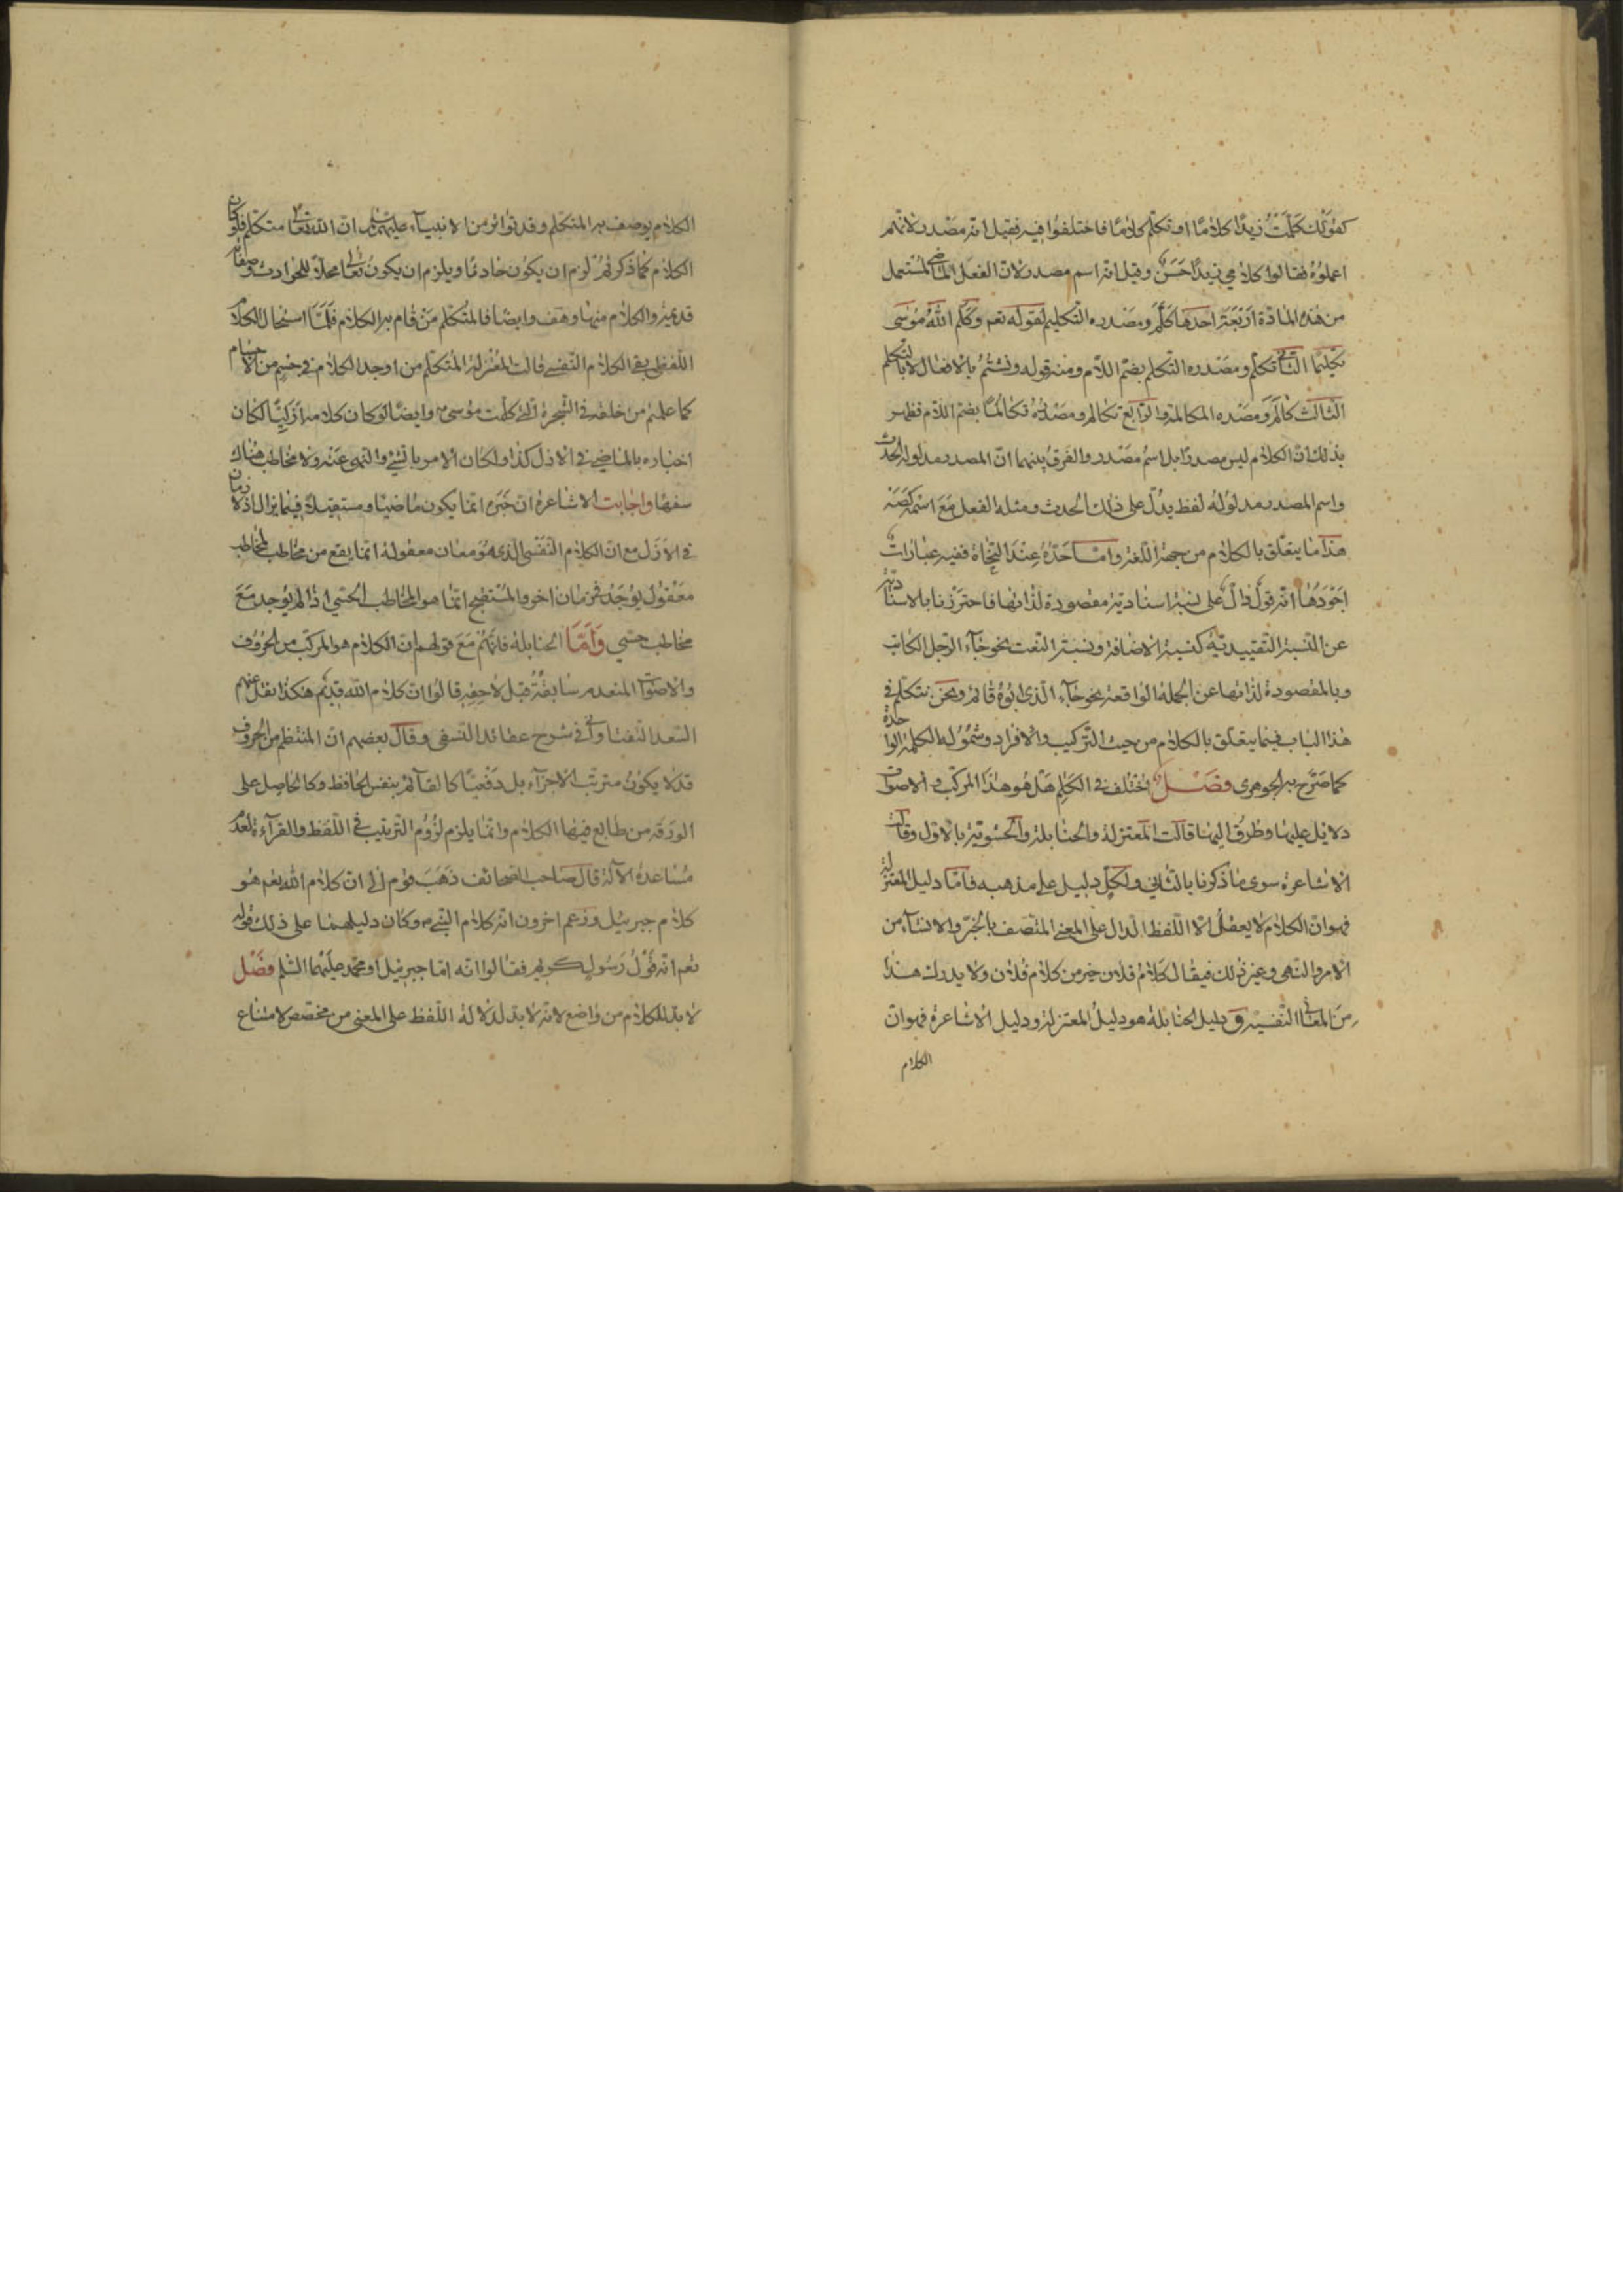 كقولك كلمت زيدا كلاما او تكلم كلاما فاختلفوا فيه فقيل انه مصدر لانهم
اعملوه فقالوا كلامي زيدا حسن وقيل انه اسم مصدر لان الفعل الماضي المستعمل
من هذه المادة اربعة احدها كلم ومصدره التكليم لقوله تعم وكلم الله موسى
تكليما الثاني تكلم ومصدره التكلم بضم اللام ومنه قوله ونشتم بالافعال لا بالتكلم
الثالث كالم ومصدره المكالمة والرابع تكالم ومصدره تكالما بضم اللام فظهر
بذلك ان الكلام ليس مصدرا بل اسم مصدر والفرق بينهما ان المصدر مدلوله الحدث
واسم المصدر مدلوله لفظ يدل على ذلك الحدث ومثله الفعل مع اسمه كصه
هذا ما يتعلق بالكلام من جهة اللغة واما حده عند النحاة ففيه عبارات
اجودها انه قول دال على نسبة اسنادية مقصودة لذاتها فاحترزنا بالاسنادية
عن النسبة التقييدية كنسبة الاضافة ونسبة النعت نحو جاء الرجل الكاتب
وبالمقصودة لذاتها عن الجملة الواقعة نحو جاء الذي ابوه قائم ونحن نتكلم في
هذا الباب فيما يتعلق بالكلام من حيث التركيب والافراد وشموله الكلمة الواحدة
كما صرح به الجوهري فصل اختلف في الكلام هل هو هذا المركب والاصوات
دلائل عليها وطرق اليها قالت المعتزلة والحنابلة والحشوية بالاول وقالت
الاشاعرة سوى ما ذكرنا بالثاني ولكل دليل على مذهبه فاما دليل المعتزلة
فهو ان الكلام لا يعقل الا اللفظ الدال على المعنى المتصف بالخبر والانشاء من
الامر والنهي وغير ذلك فيقال كلام فلان خير من كلام فلان ولا يدرك هذا
من المعاني النفسية ق دليل الحنابلة هو دليل المعتزلة ودليل الاشاعرة فهو ان
الكلام
الكلام يوصف به المتكلم وقد تواتر من الانبياء عليهم السلم ان الله تعالى متكلم فلو كان
الكلام كما ذكرتم لزم ان يكون حادثا ويلزم ان يكون تعالى محلا للحوادث وصفاته
قديمة والكلام منها وهف وايضا فالمتكلم من قام به الكلام فلما استحال الكلام
اللفظي بقي الكلام النفسي قالت المعتزلة المتكلم من اوجد الكلام في جسم من الاجسام
كما علمتم من خلقه في الشجرة التي كلمت موسى وايضا لو كان كلامه ازليا لكان
اخباره بالماضي في الازل كذا ولكان الامر بالشيء والنهي عنه ولا مخاطب هناك
سفها واجابت الاشاعرة ان خبره انما يكون ماضيا ومستقبلا فيما يزال اذ لا زمان
في الازل مع ان الكلام النفسي الذي هو معان معقولة انما يقع من مخاطب لمخاطب
معقول يوجد في زمان اخر والمستقبح انما هو المخاطب الحسي اذا لم يوجد مع
مخاطب حسي واما الحنابلة فانهم مع قولهم ان الكلام هو المركب من الحروف
والاصوات المنعدم سابقه قبل لاحقه قالوا ان كلام الله قديم هكذا نقل عنهم
السعد التفتازاني في شرح عقائد النسفي وقال بعضهم ان المنتظم من الحروف
قد لا يكون مترتب الاجزاء بل دفعيا كالقائم بنفس الحافظ وكالحاصل على
الورقة من طابع فيها الكلام وانما يلزم لزوم الترتيب في اللفظ والقراءة لعدم
مساعدة الآلة قال صاحب الصحائف ذهب قوم الى ان كلام الله تعم هو
كلام جبرئيل وزعم اخرون انه كلام النبي وكان دليلهما على ذلك قوله
تعم انه لقول رسول كريم فقالوا انه اما جبرئيل او محمد عليهما السلم فصل
لا بد للكلام من واضع لانه لا بد لدلالة اللفظ على المعنى من مخصص لامتناع